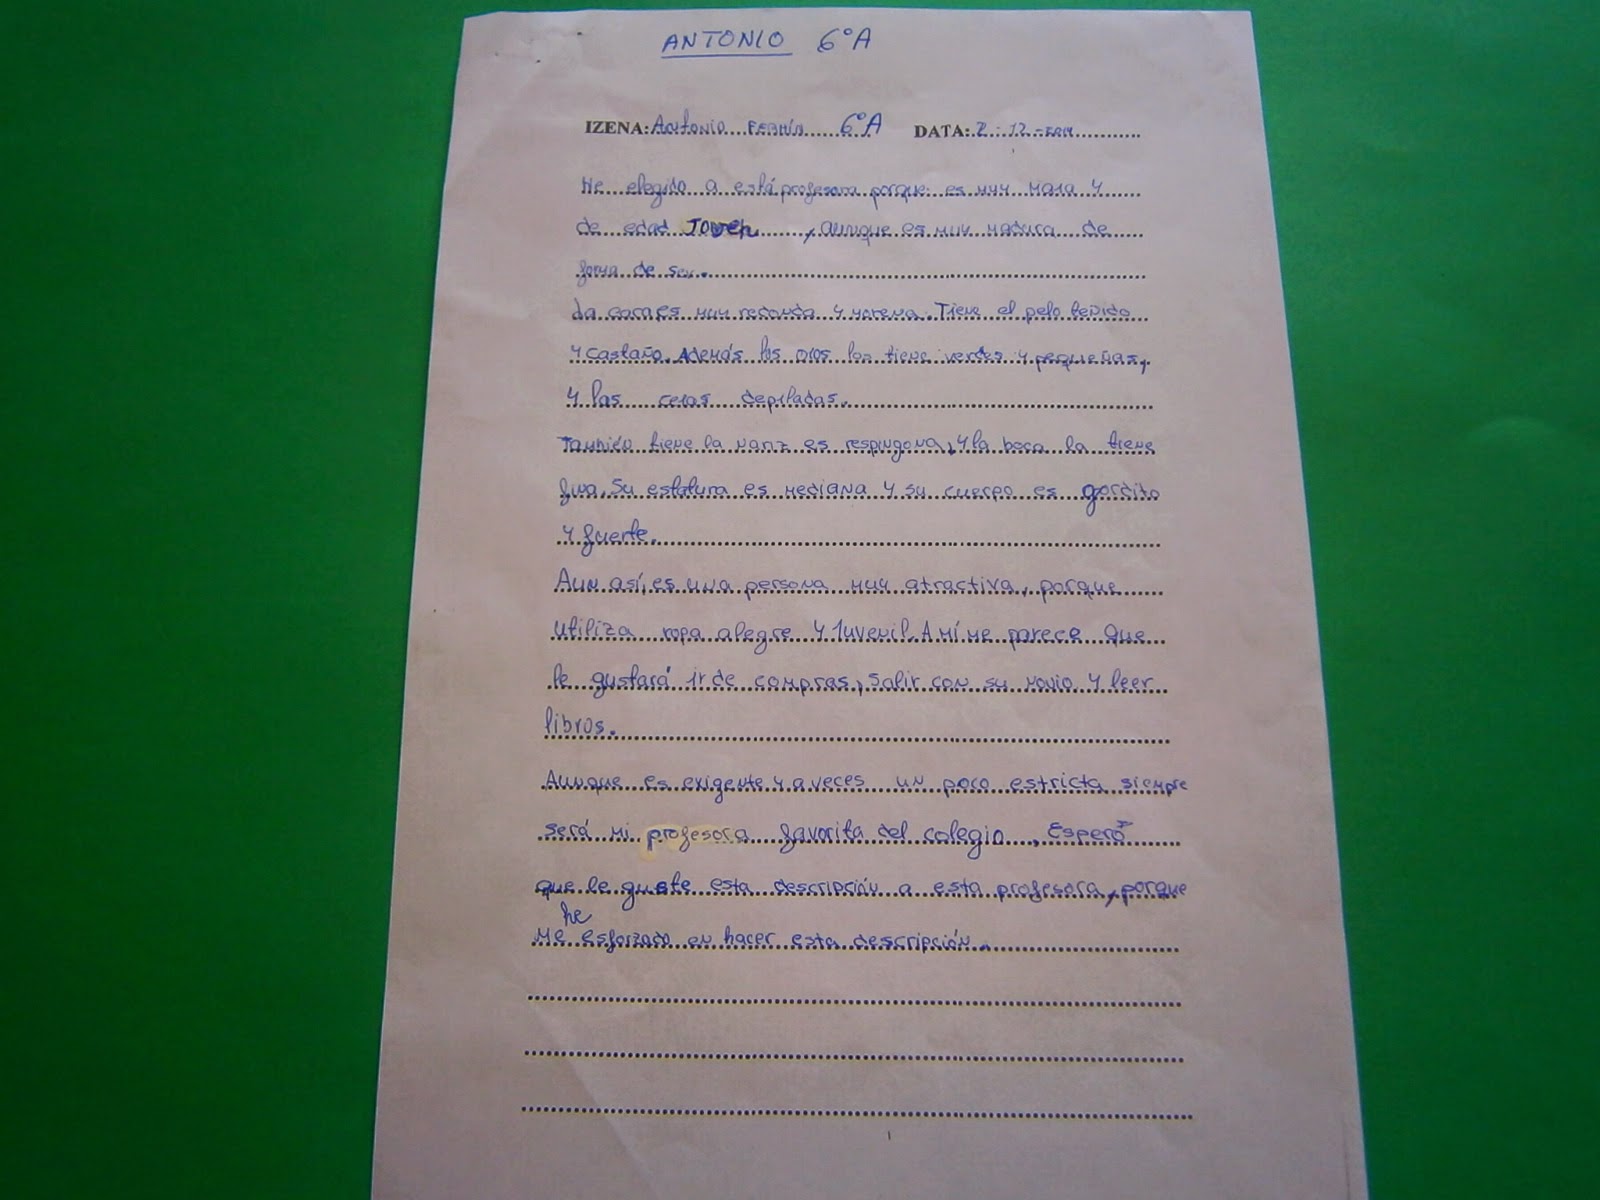 ANTONIO 6ºA
IZENA: Antonio FERMÍN 6ºA DATA: 2-12-
He elegido a está profesora porque es muy maja y
de edad JOVEN, aunque es muy madura de
forma de ser.
La cara es muy redonda y morena. Tiene el pelo teñido
y castaño. Además los ojos los tiene verdes y pequeñas,
y las cejas depiladas.
También tiene la nariz es respingona, y la boca la tiene
fina. Su estatura es mediana y su cuerpo es gordito
y fuerte.
Aun así, es una persona muy atractiva, porque
utiliza ropa alegre y juvenil. A mí me parece que
le gustará ir de compras, salir con su novio y leer
libros.
Aunque es exigente y a veces un poco estricta siempre
será mi profesora favorita del colegio, Espero
que le guste esta descripción a esta profesora, porque
he
me esforzado en hacer esta descripción.